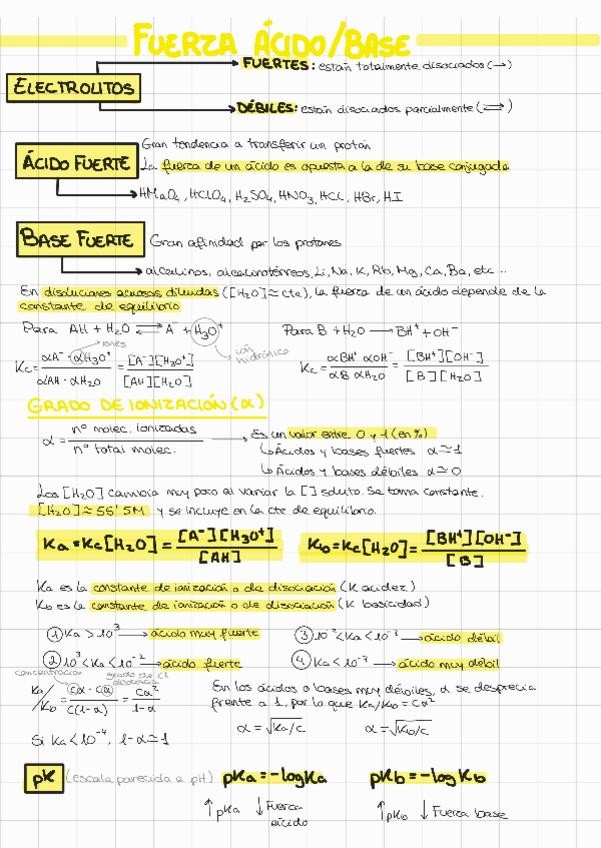 FUERZA ÁCIDO/BASE
ELECTROLITOS
FUERTES: están totalmente disociados (→)
DÉBILES: están disociados parcialmente (⇌)
ÁCIDO FUERTE
Gran tendencia a transferir un protón
La fuerza de un ácido es opuesta a la de su base conjugada
HMnO₄, HClO₄, H₂SO₄, HNO₃, HCl, HBr, HI
BASE FUERTE
Gran afinidad por los protones
alcalinos, alcalinotérreos, Li, Na, K, Rb, Mg, Ca, Ba, etc..
En disoluciones acuosas diluidas ([H₂O] ≈ cte), la fuerza de un ácido depende de la
constante de equilibrio
Para AH + H₂O ⇌ A⁻ + H₃O⁺
iones
ión
hidrónico
Kc = αA⁻ · αH₃O⁺ / αAH · αH₂O = [A⁻][H₃O⁺] / [AH][H₂O]
Para B + H₂O → BH⁺ + OH⁻
Kc = αBH⁺ αOH⁻ / αB αH₂O = [BH⁺][OH⁻] / [B][H₂O]
GRADO DE IONIZACIÓN (α)
α = nº molec. ionizadas / nº total molec.
Es un valor entre 0 y 1 (en %)
↳ Ácidos y bases fuertes α ≃ 1
↳ Ácidos y bases débiles α ≃ 0
Los [H₂O] cambia muy poco al variar la [] soluto. Se toma constante.
[H₂O] ≈ 55'5M y se incluye en la cte de equilibrio.
Ka = Kc[H₂O] = [A⁻][H₃O⁺] / [AH]
Kb = Kc[H₂O] = [BH⁺][OH⁻] / [B]
Ka es la constante de ionización o de disociación (K acidez)
Kb es la constante de ionización o de disociación (K basicidad)
① Ka > 10³ → ácido muy fuerte
② 10³ < Ka < 10⁻² → ácido fuerte
③ 10⁻² < Ka < 10⁻⁷ → ácido débil
④ Ka < 10⁻⁷ → ácido muy débil
concentración
grado de
disociación
Ka/Kb = cα · cα / c(1-α) = cα² / 1-α
Si Ka < 10⁻⁴, 1-α ≃ 1
En los ácidos o bases muy débiles, α se desprecia
frente a 1, por lo que Ka/Kb = cα²
α = √Ka/c
α = √Kb/c
pK (escala parecida a pH) pKa = -logKa pKb = -logKb
↑ pKa ↓ Fuerza ácido
↑ pKb ↓ Fuerza base